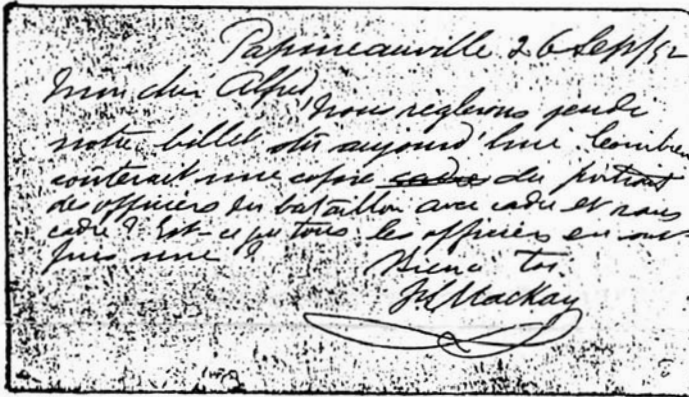 Papineauville 26 Sept/92
Mon cher Alfred
Nous reglerons jeudi
notre billet dû aujourd'hui Combien
couterait une copie cadre du portrait
des officiers du bataillon avec cadre et sans
cadre? Est-ce que tous les officiers en ont
pris une?
Bien à toi
Mackay